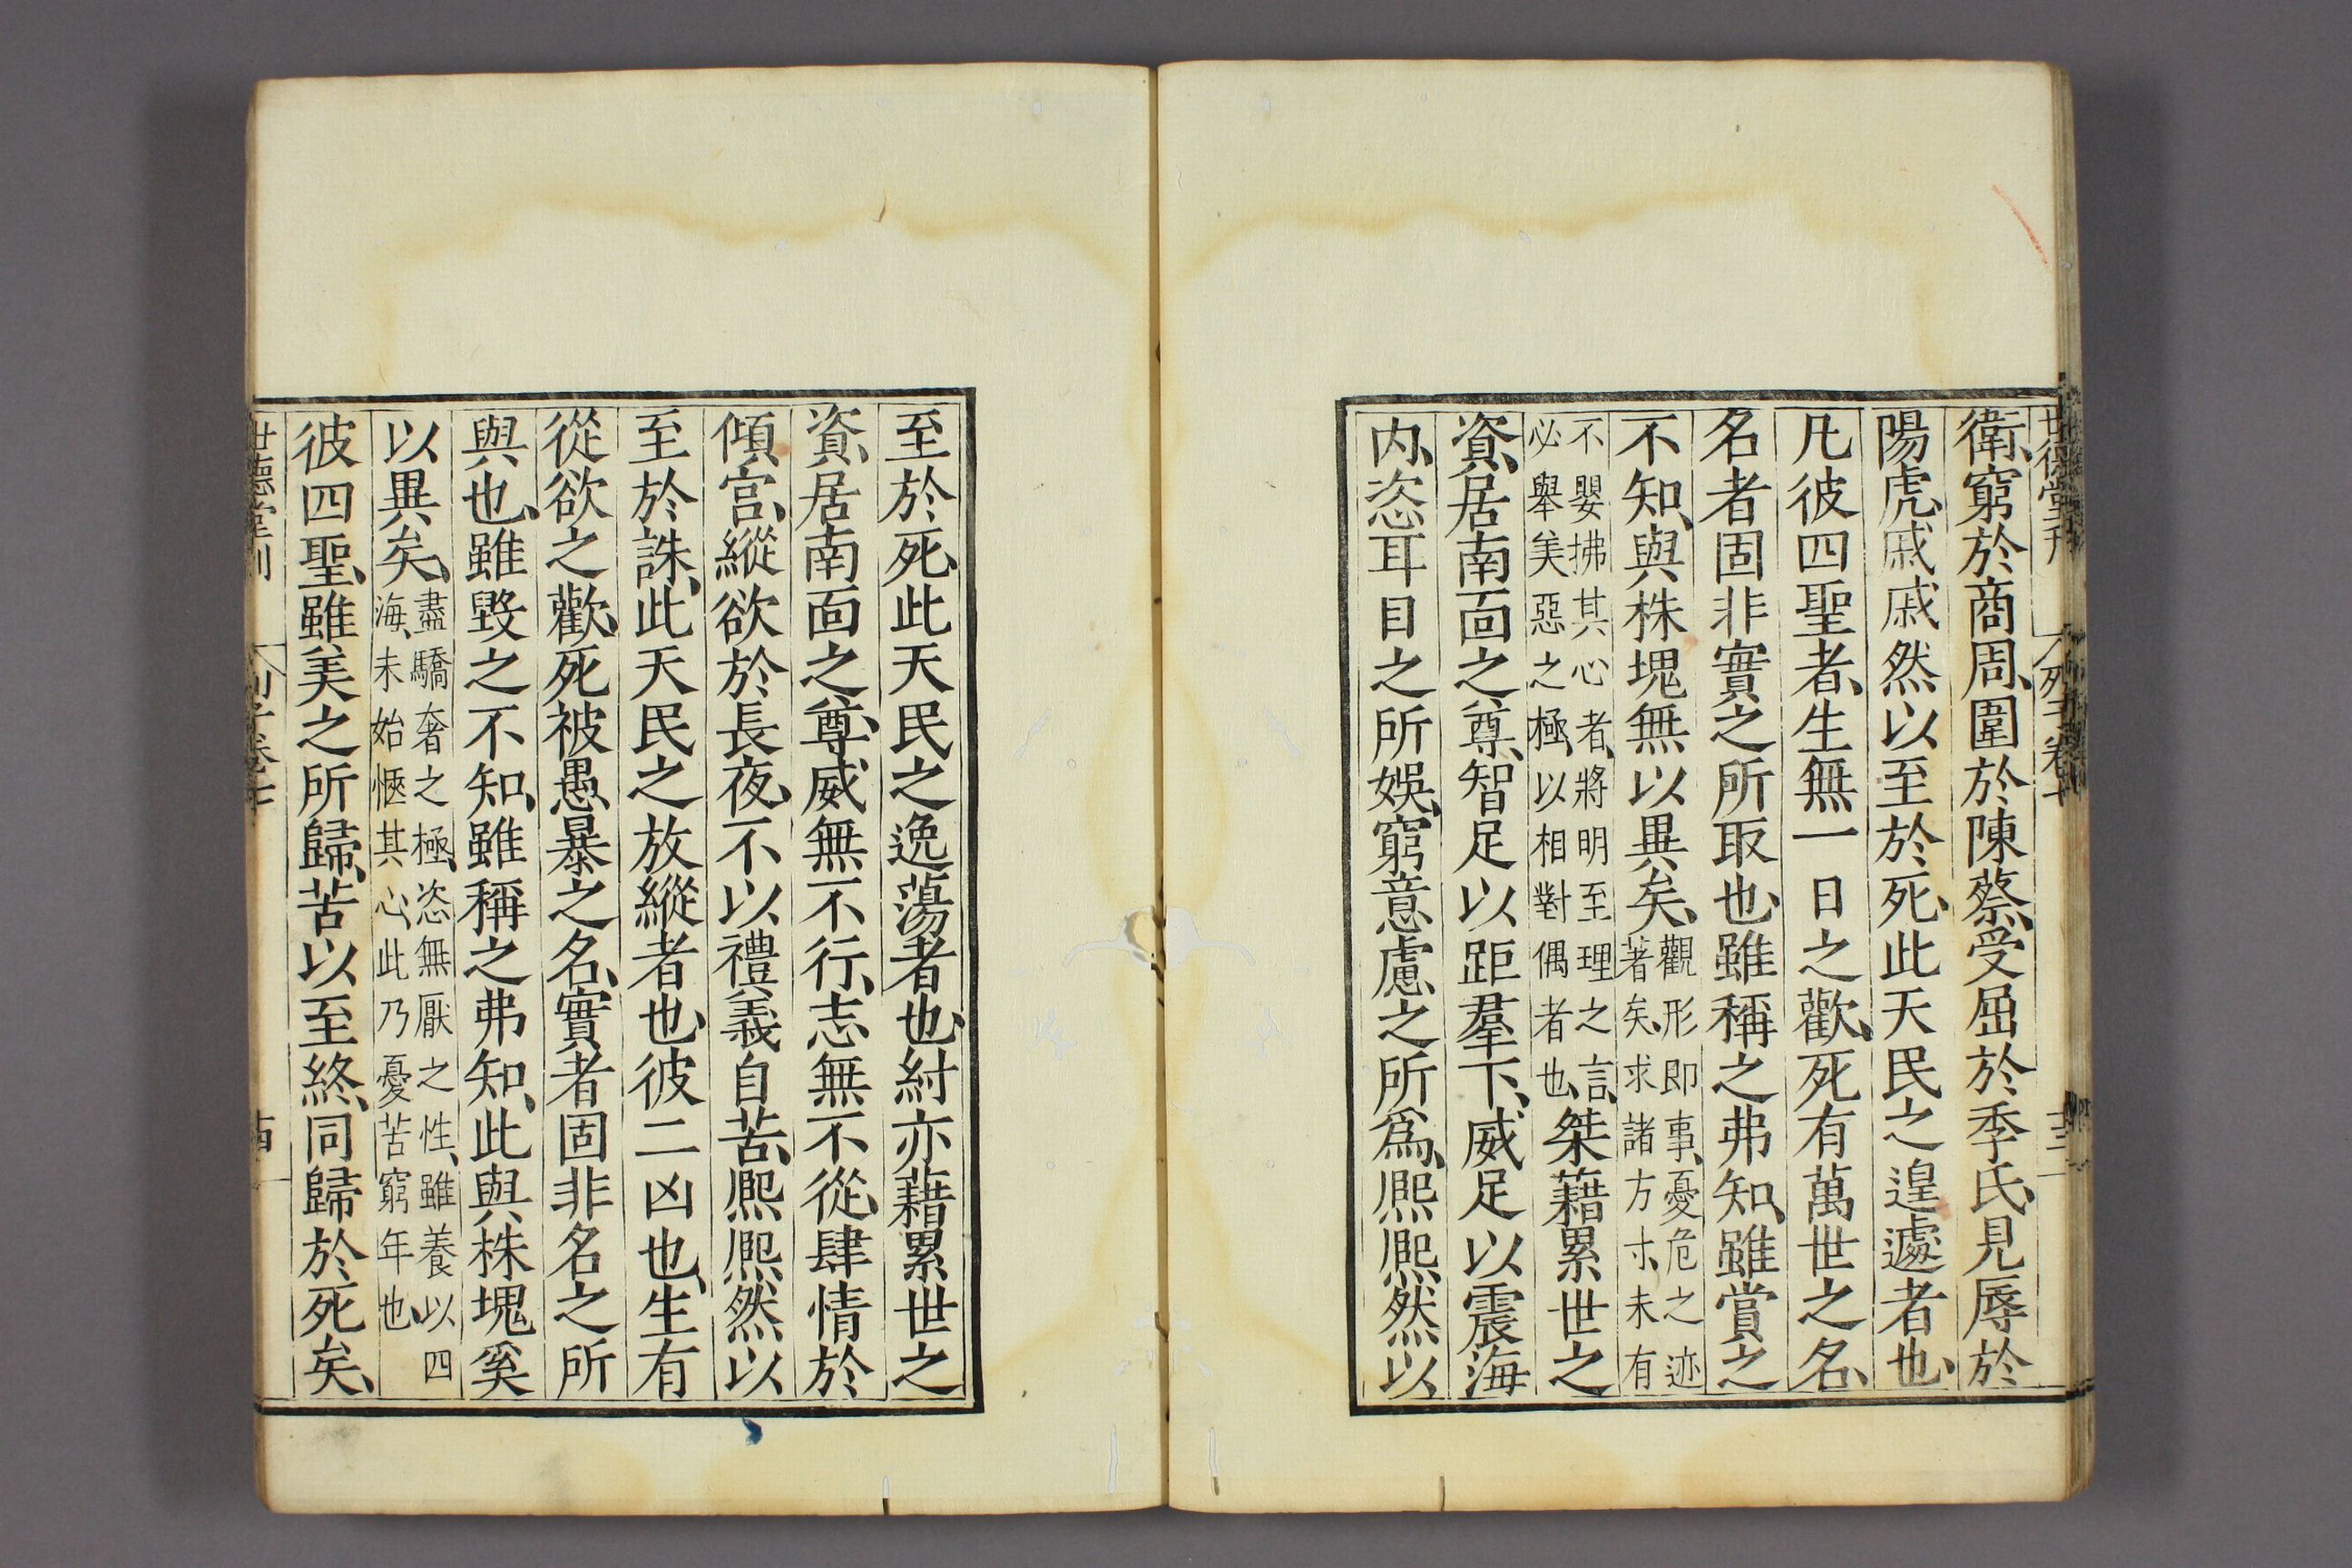 世德堂刊 列子卷七 十三
衛、窮於商周、圍於陳蔡、受屈於季氏、見辱於
陽虎、戚戚然以至於死、此天民之遑遽者也、
凡彼四聖者、生無一日之歡、死有萬世之名、
名者固非實之所取也、雖稱之弗知、雖賞之
不知、與株塊無以異矣、觀形即事、憂危之迹
著矣、求諸方寸、未有
不嬰拂其心者、將明至理之言、
必舉美惡之極、以相對偶者也、桀藉累世之
資、居南面之尊、智足以距羣下、威足以震海
内、恣耳目之所娛、窮意慮之所爲、熈熈然以
至於死、此天民之逸蕩者也、紂亦藉累世之
資、居南面之尊、威無不行、志無不從、肆情於
傾宫、縱欲於長夜、不以禮義自苦、熈熈然以
至於誅、此天民之放縱者也、彼二凶也、生有
從欲之歡、死被愚暴之名、實者固非名之所
與也、雖毀之不知、雖稱之弗知、此與株塊奚
以異矣、盡驕奢之極、恣無厭之性、雖養以四
海、未始愜其心、此乃憂苦窮年也、
彼四聖、雖美之所歸、苦以至終、同歸於死矣、
世德堂刊 列子卷七 十四